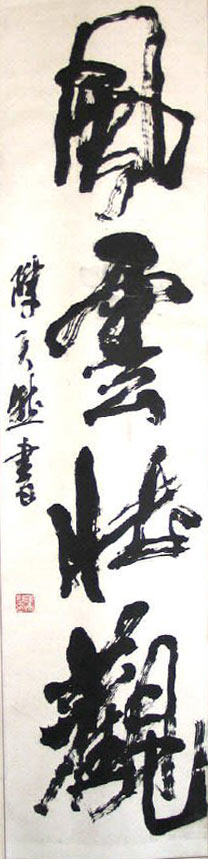 風雲壯觀
陳天然書